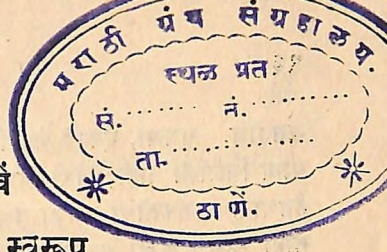 मराठी ग्रंथ संग्रहालय.
स्थळ प्रत.
सं............ नं............
ता..................
ठाणें.
स्वरूप